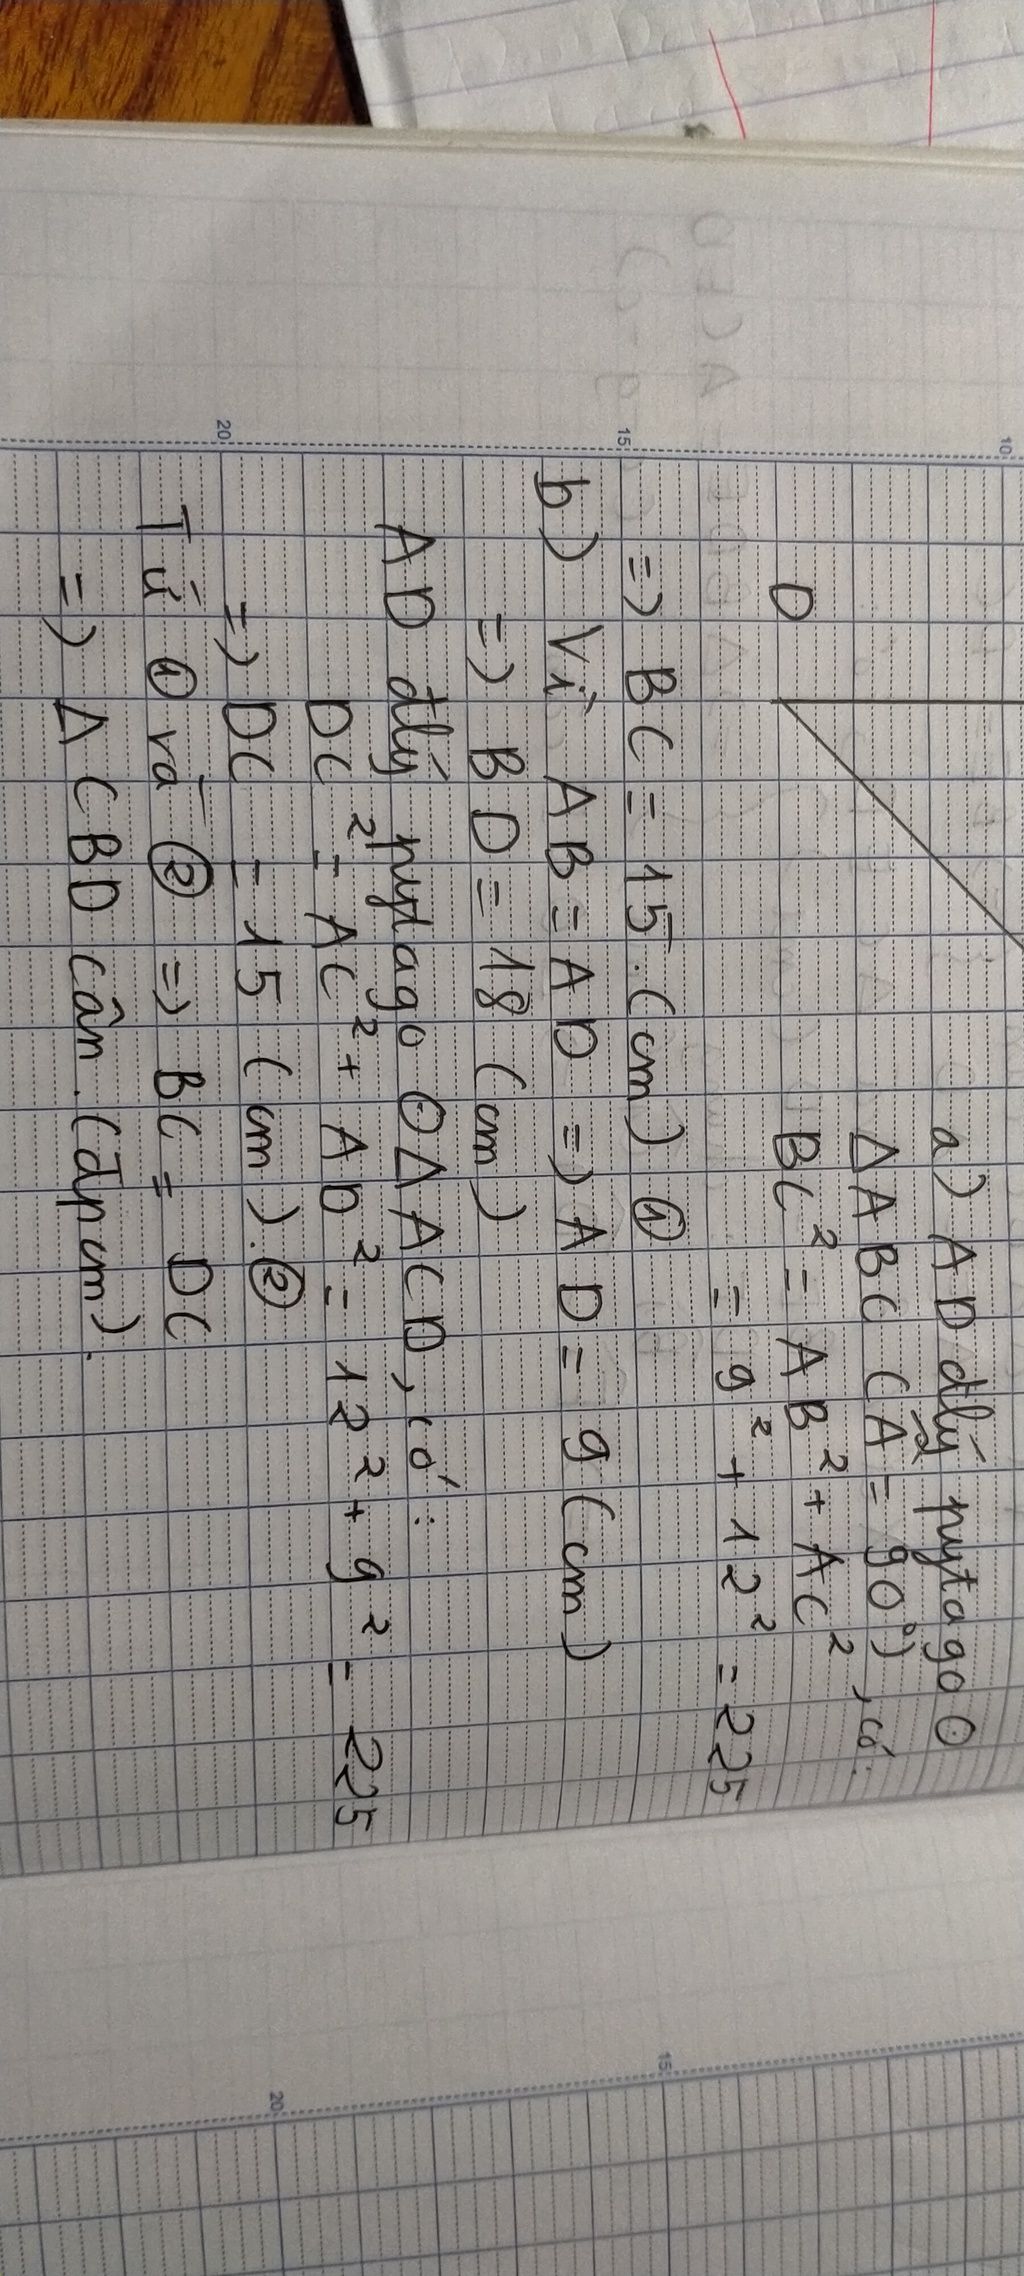 a) AD đlý pytago ⊙
Δ ABC (Â = 90°), có:
D
BC² = AB² + AC²
= 9² + 12² = 225
=) BC = 15. (cm) ①
b) Vì AB = AD =) AD = 9 (cm)
=) BD = 18 (cm)
AD đlý pytago ⊙ Δ ACD, có:
DC² = AC² + AD² = 12² + 9² = 225
=) DC = 15 (cm). ②
Từ ① và ② =) BC = DC
=) Δ CBD cân. (đpcm).
10
15
20
15
20